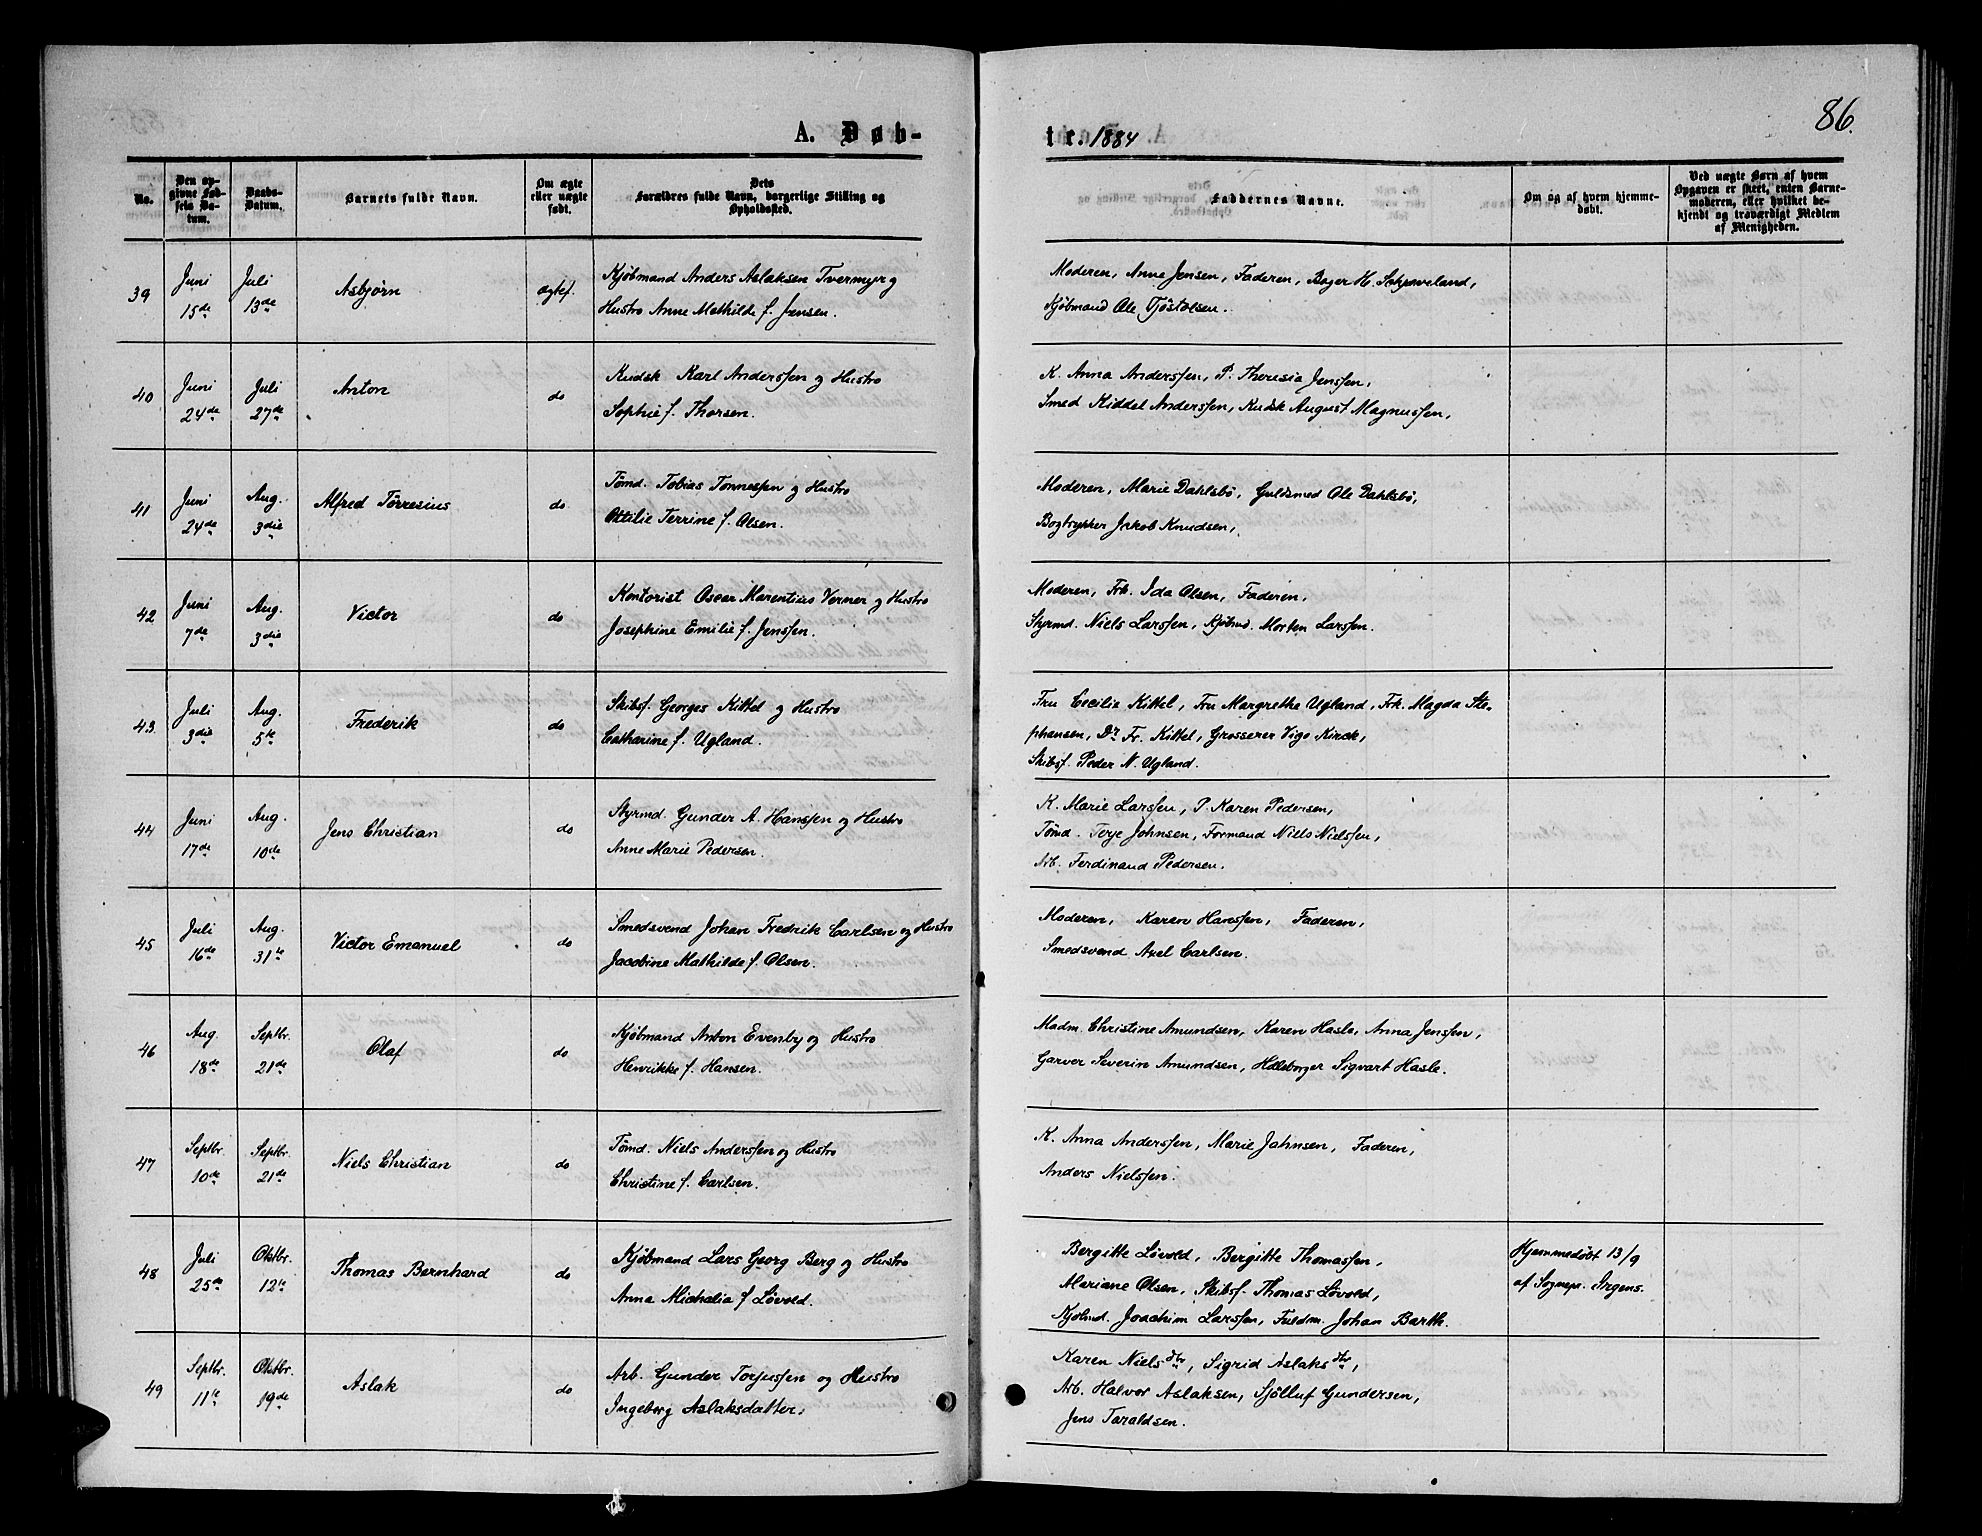 86.
A. Døb-
te. 1884
No.
Den op-
givne Fød-
sels Da-
tum.
Daabs-
Datum.
Barnets fulde Navn.
Om ægte
eller uægte
født.
Dets
Forældres fulde Navn, borgerlige Stilling og
Opholdssted.
Faddernes Navne.
Om og af hvem hjemme-
døbt.
Ved uægte Børn af hvem
Opgaven er skeet, enten Barne-
moderen, eller hvilket be-
kjendt og troværdigt Medlem
af Menigheden.
39
Juni
15de
Juli
13de
Asbjørn
ægtef.
Kjøbmand Anders Aslaksen Tvermyr og
Hustro Anne Mathilde f. Jensen.
Moderen, Anne Jensen, Faderen, Bager H. Schjraveland,
Kjøbmand Ole Tjøstolsen.
40
Juni
24de
Juli
27de
Anton
do
Kudsk Karl Anderssen og Hustro
Sophie f. Thorsen.
K. Anna Anderssen, P. Theresia Jenssen,
Smed Kiddel Anderssen, Kudsk August Magnussen,
41
Juni
24de
Aug.
3die
Alfred Törresius
do
Tömd. Tobias Tönnessen og Hustro
Ottilie Terrine f. Olsen.
Moderen, Marie Dahlsbö, Guldsmed Ole Dahlsbö,
Bogtrykker Jakob Knudsen,
42
Juni
7de
Aug.
3die
Victor
do
Kontorist Oscar Marentius Verner og Hustro
Josephine Emilie f. Jenssen.
Moderen, Frk. Ida Olsen, Faderen,
Styrmd. Niels Larssen, Kjöbmd. Morten Larssen.
43.
Juli
3die
Aug.
5te
Frederik
do
Skibsf. Georges Kittel og Hustro
Catharine f. Ugland.
Fru Cecilia Kittel, Fru Margrethe Ugland, Frk. Magda Ste-
phansen, Dr Fr. Kittel, Grosserer Vigo Kirck,
Skibsf. Peder N. Ugland.
44
Juni
17de
Aug.
10de
Jens Christian
do
Styrmd. Gunder A. Hanssen og Hustro
Anne Marie Pedersen.
K. Marie Larssen, P. Karen Pedersen,
Tömd. Terje Johnsen, Formand Niels Nielssen,
Arb. Ferdinand Pedersen.
45
Juli
16de
Aug.
31te
Victor Emanuel
do
Smedsvend Johan Fredrik Carlsen og Hustro
Jacobine Mathilde f. Olsen.
Moderen, Karen Hanssen, Faderen,
Smedsvend Axel Carlsen.
46
Aug.
18de
Septbr.
21de
Olaf
do
Kjöbmand Anton Evenby og Hustro
Henrikke f. Hansen.
Madm. Christine Amundsen, Karen Hasle, Anna Jenssen,
Garver Severin Amundsen, Sigvart Hasle.
47
Septbr.
10de
Septbr.
21de
Niels Christian
do
Tömd. Niels Anderssen og Hustro
Christine f. Carlsen.
K. Anna Anderssen, Marie Jahnsen, Faderen,
Anders Nielssen.
48
Juli
25de
Oktbr.
12te
Thomas Bernhard
do
Kjöbmand Lars Georg Berg og Hustro
Anna Michalia f Lövold.
Bergitte Lövold, Bergitte Thomassen,
Mariane Olsen, Skibsf. Thomas Lövold,
Kjöbmd. Joachim Larssen, Fuldm. Johan Barth.
Hjemmedöbt 13/9
af Sognepr. Irgens.
49
Septbr.
11te
Oktbr.
19de
Aslak
do
Arb. Gunder Torjussen og Hustro
Ingeborg Aslaksdatter.
Karen Nielsdtr, Sigrid Aslaksdtr,
Arb. Halvor Aslaksen, Sjölluf Gundersen,
Jens Taraldsen.